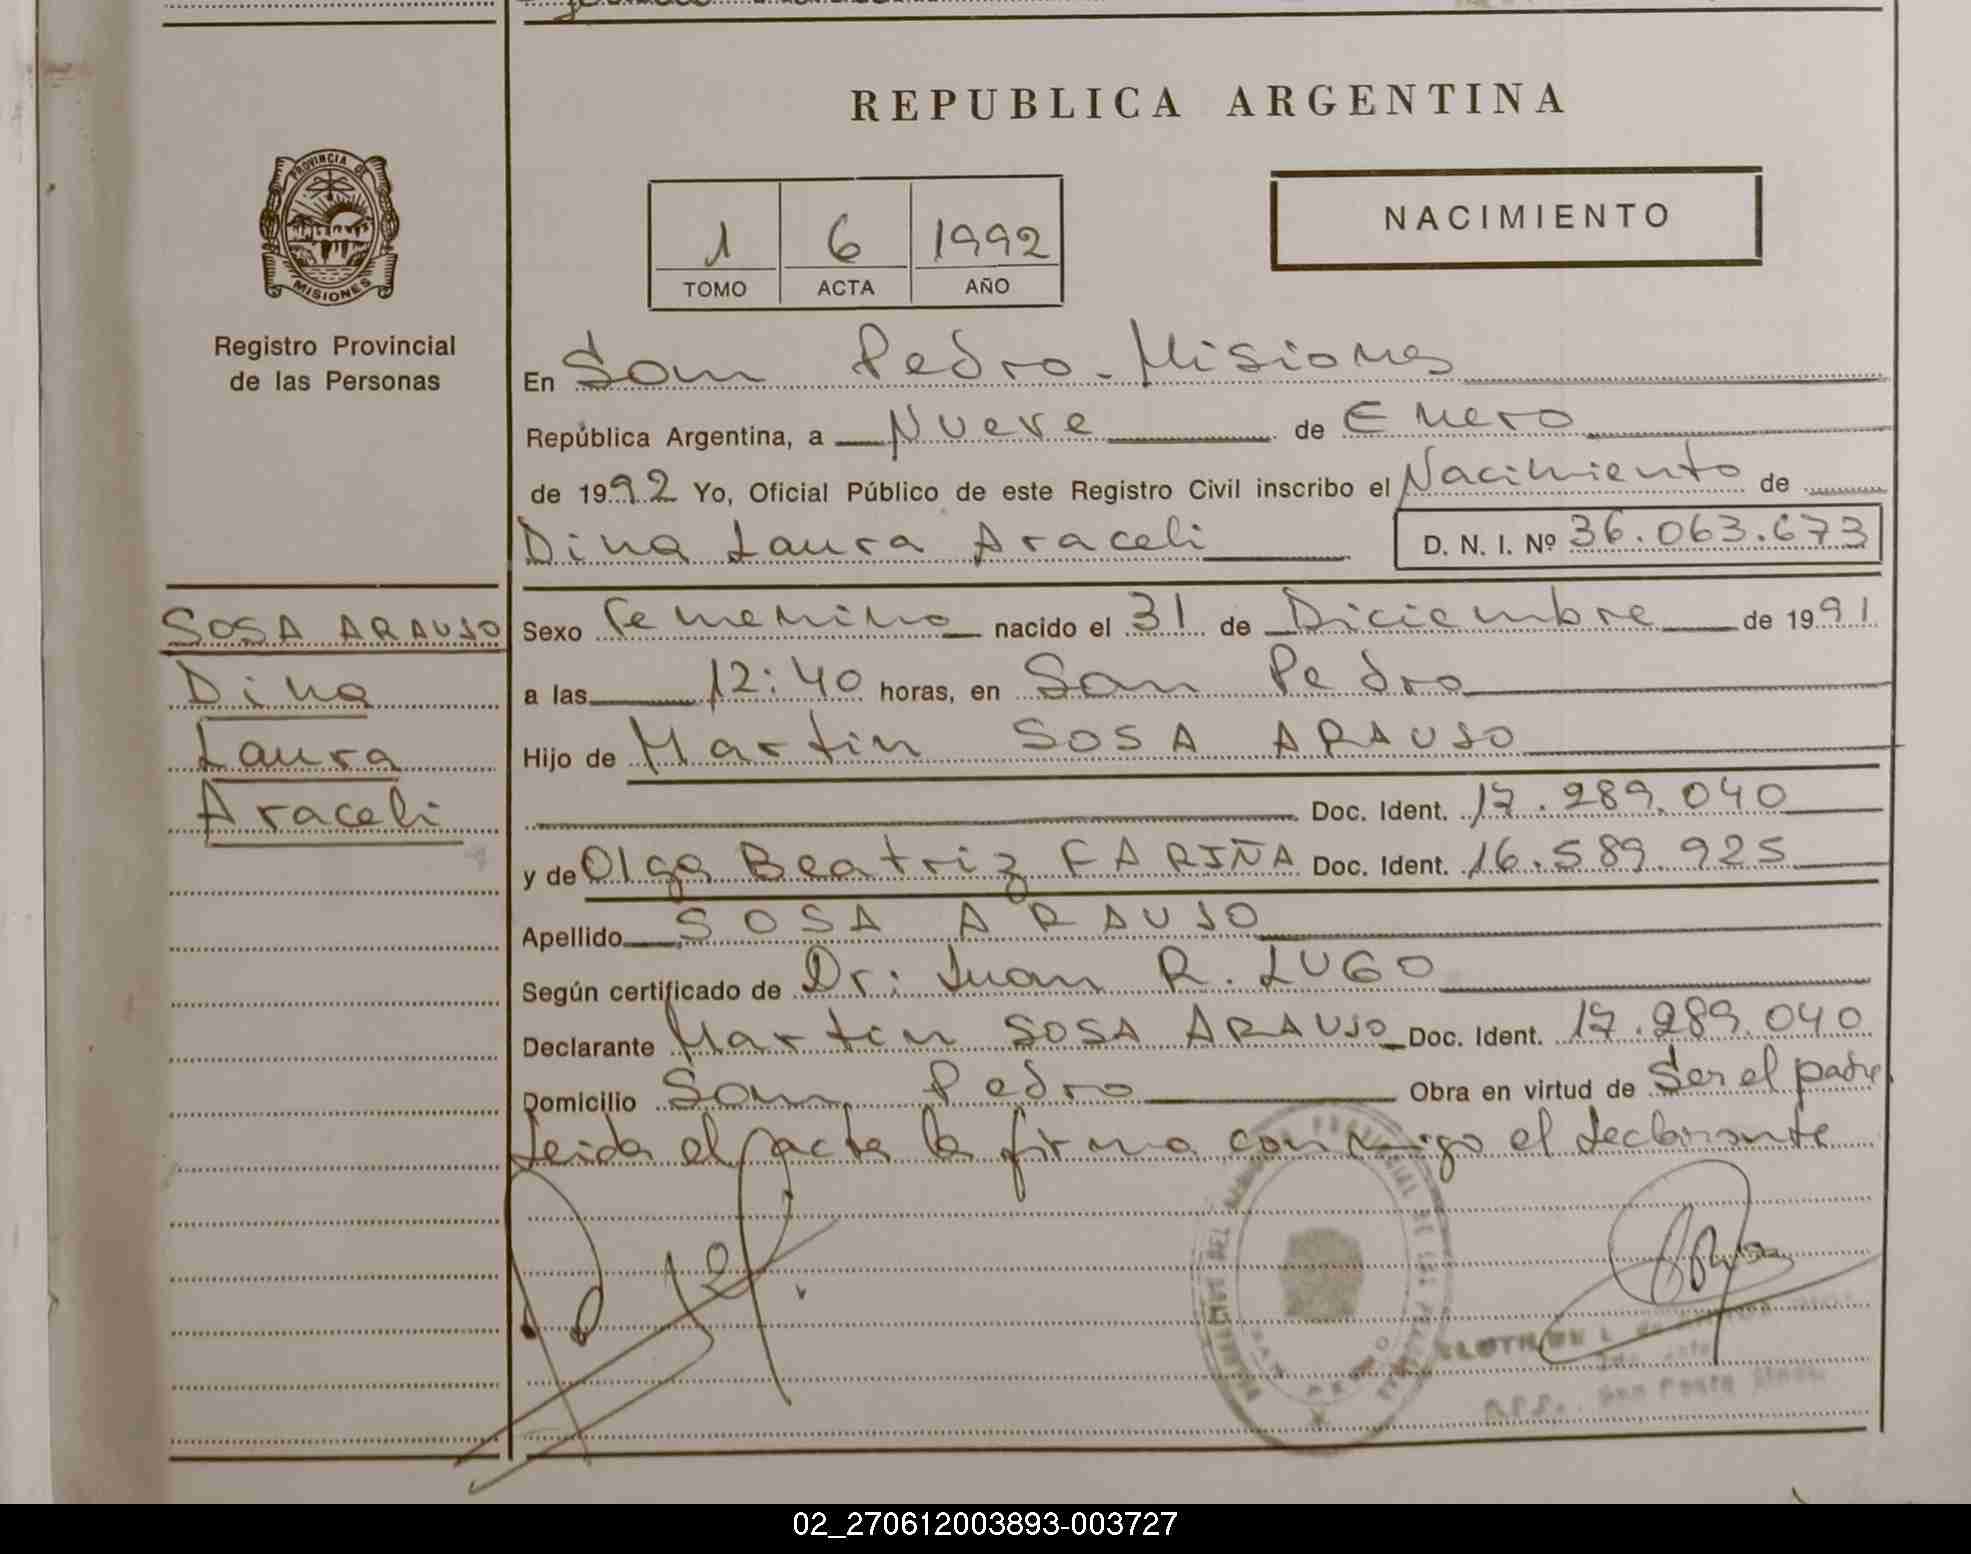 REPUBLICA ARGENTINA
PROVINCIA DE
MISIONES
Registro Provincial
de las Personas
1 6 1992
TOMO ACTA AÑO
NACIMIENTO
En San Pedro - Misiones
República Argentina, a Nueve de Enero
de 1992 Yo, Oficial Público de este Registro Civil inscribo el Nacimiento de
Dina Laura Araceli D. N. I. Nº 36.063.673
SOSA ARAUJO
Dina
Laura
Araceli
Sexo Femenino nacido el 31 de Diciembre de 1991
a las 12:40 horas, en San Pedro
Hijo de Martin SOSA ARAUJO
Doc. Ident. 17.289.040
y de Olga Beatriz FARIÑA Doc. Ident. 16.589.925
Apellido SOSA ARAUJO
Según certificado de Dr: Juan R. LUGO
Declarante Martin SOSA ARAUJO Doc. Ident. 17.289.040
Domicilio San Pedro Obra en virtud de Ser el padre
Leida el acta la firma conmigo el declarante
02_270612003893-003727